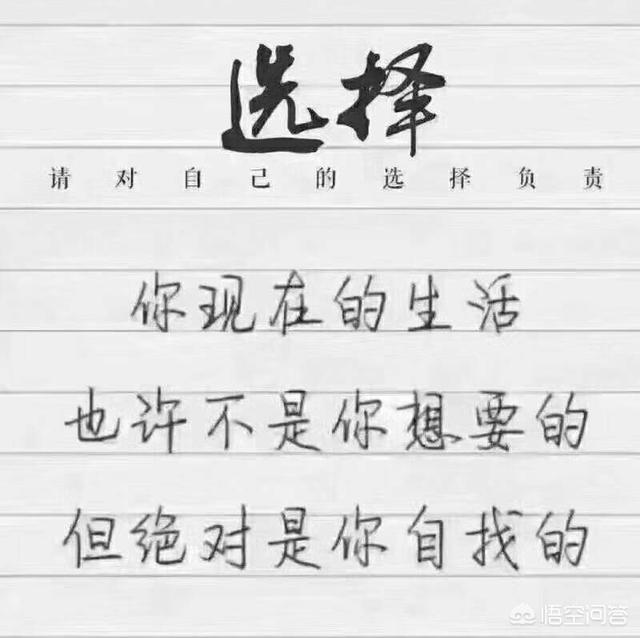 选择
请对自己的选择负责
你现在的生活
也许不是你想要的
但绝对是你自找的
悟空问答